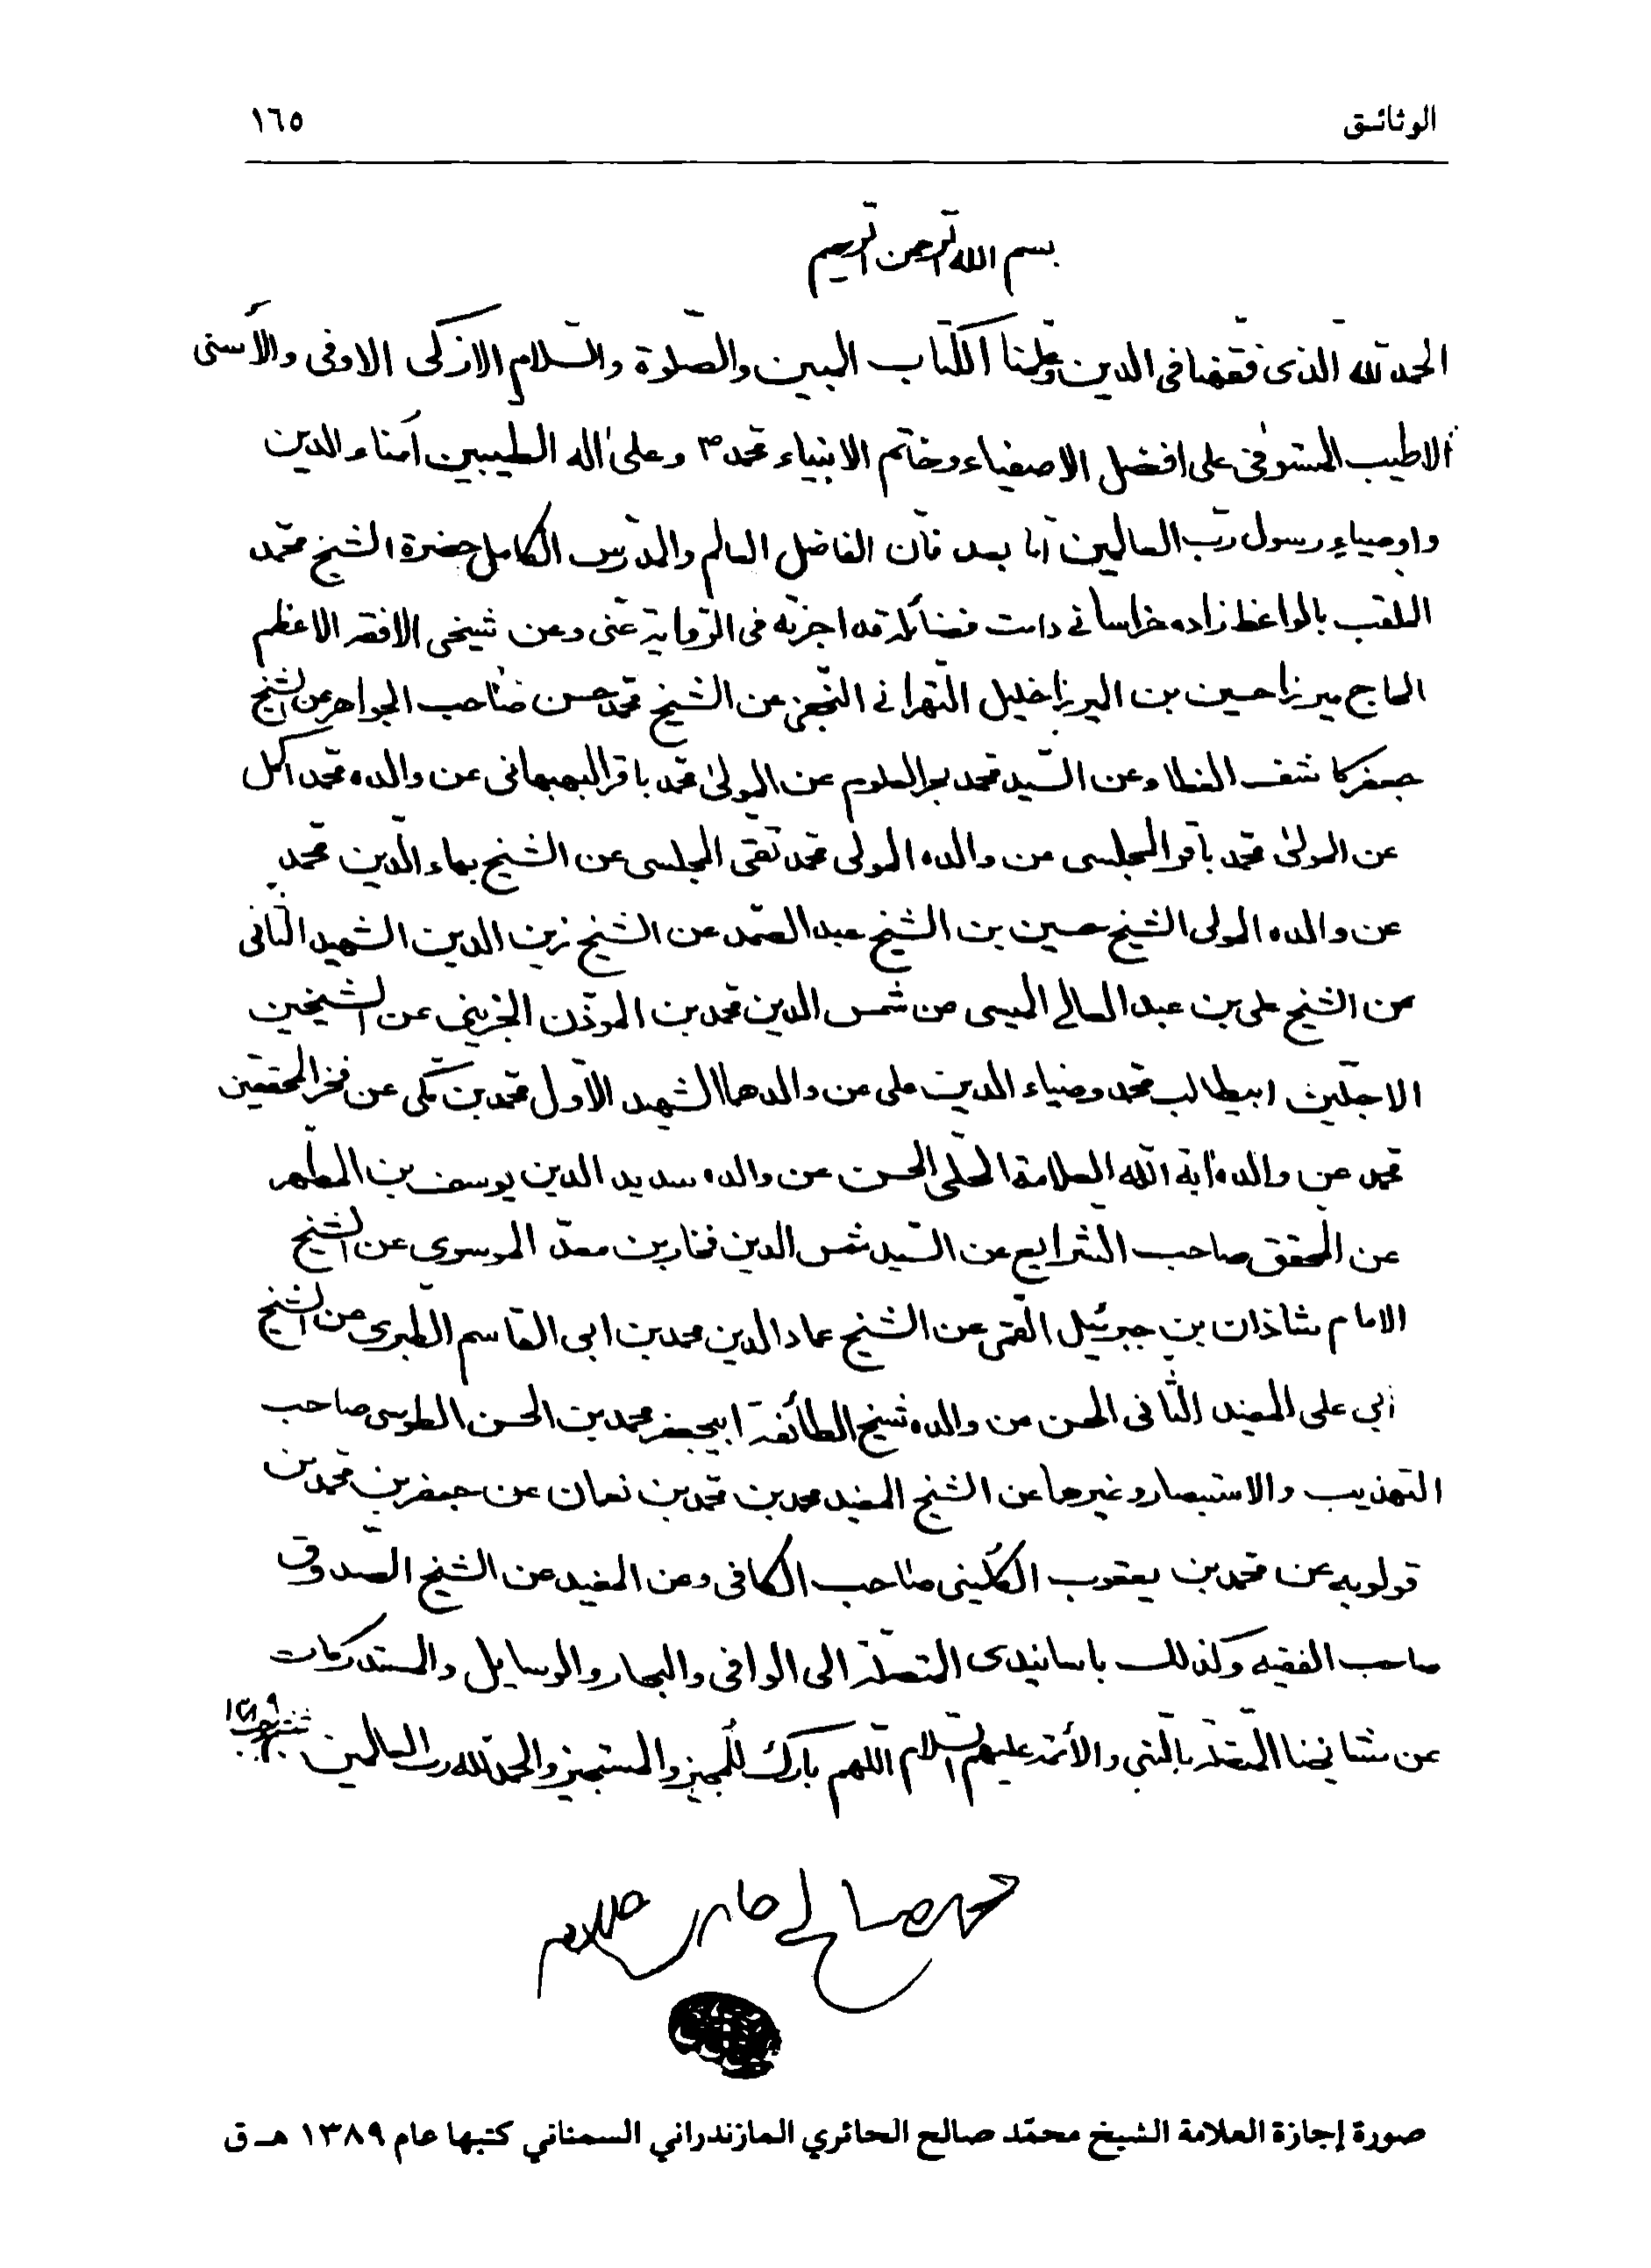 الوثائـق
١٦٥
بسم الله الرحمن الرحيم
الحمد لله الذی فقهنا فی الدین وعلمنا الکتاب المبین والصلوة والسلام الازکی الاوفی والأسنی
الاطیب المستوفی علی افضل الاصفیاء وخاتم الانبیاء محمد ص وعلیٰ اله الطیبین اُمناء الدین
واوصیاء رسول ربّ العالمین امّا بعد فانّ الفاضل العالم والمدرّس الکامل حضرة الشیخ محمّد
الملقب بالواعظ زاده خراسانے دامت فضائله قد اجزته فی الرّوایة عنّی وعن شیخی الافقه الاعظم
الحاج میرزا حسین بن المیرزا خلیل التهرانے النّجفی عن الشیخ محمّد حسن صاحب الجواهر عن الشیخ
جعفر کاشف الغطاء وعن السّید محمد بحر العلوم عن المولیٰ محمّد باقر البهبهانی عن والده محمّد اکمل
عن المولیٰ محمّد باقر المجلسی عن والده المولی محمّد تقی المجلسی عن الشیخ بهاء الدّین محمّد
عن والده المولی الشیخ حسین بن الشیخ عبد الصّمد عن الشیخ زین الدین الشهید الثانی
عن الشیخ علی بن عبد العالے المیسی عن شمس الدین محمّد بن الموذّن الجزینی عن الشیخین
الاجلّین ابیطالب محمّد وضیاء الدین علی عن والدهما الشهید الاوّل محمّد بن مکّی عن فخر المحققین
محمّد عن والده اٰیة الله العلامة الحلّی الحسن عن والده سدید الدین یوسف بن المطهّر
عن المحقق صاحب الشرایع عن السّید شمس الدین فخار بن معدّ الموسوی عن الشیخ
الامام شاذان بن جبرئیل القمّی عن الشیخ عماد الدین محمد بن ابی القاسم الطبری عن الشیخ
أبی علی المفید الثانی الحسن عن والده شیخ الطائفة ابیجعفر محمد بن الحسن الطوسی صاحب
التهذیب والاستبصار وغیرها عن الشیخ المفید محمد بن محمّد بن نعمان عن جعفر بن محمّد بن
قولویه عن محمّد بن یعقوب الکُلینی صاحب الکافی وعن المفید عن الشیخ الصّدوق
صاحب الفقیه وکذلک باسانیدی المتصلة الی الوافی والبحار والوسایل والمستدرکات
عن مشایخنا المتصلة بالنبی والأئمة علیهم السلام اللهم بارک للمجیز والمستجیز والحمد لله رب العالمین
محمد صالح حائری علامه
صورة إجازة العلامة الشيخ محمّد صالح الحائري المازندراني السمناني كتبها عام ١٣٨٩ هـ ق